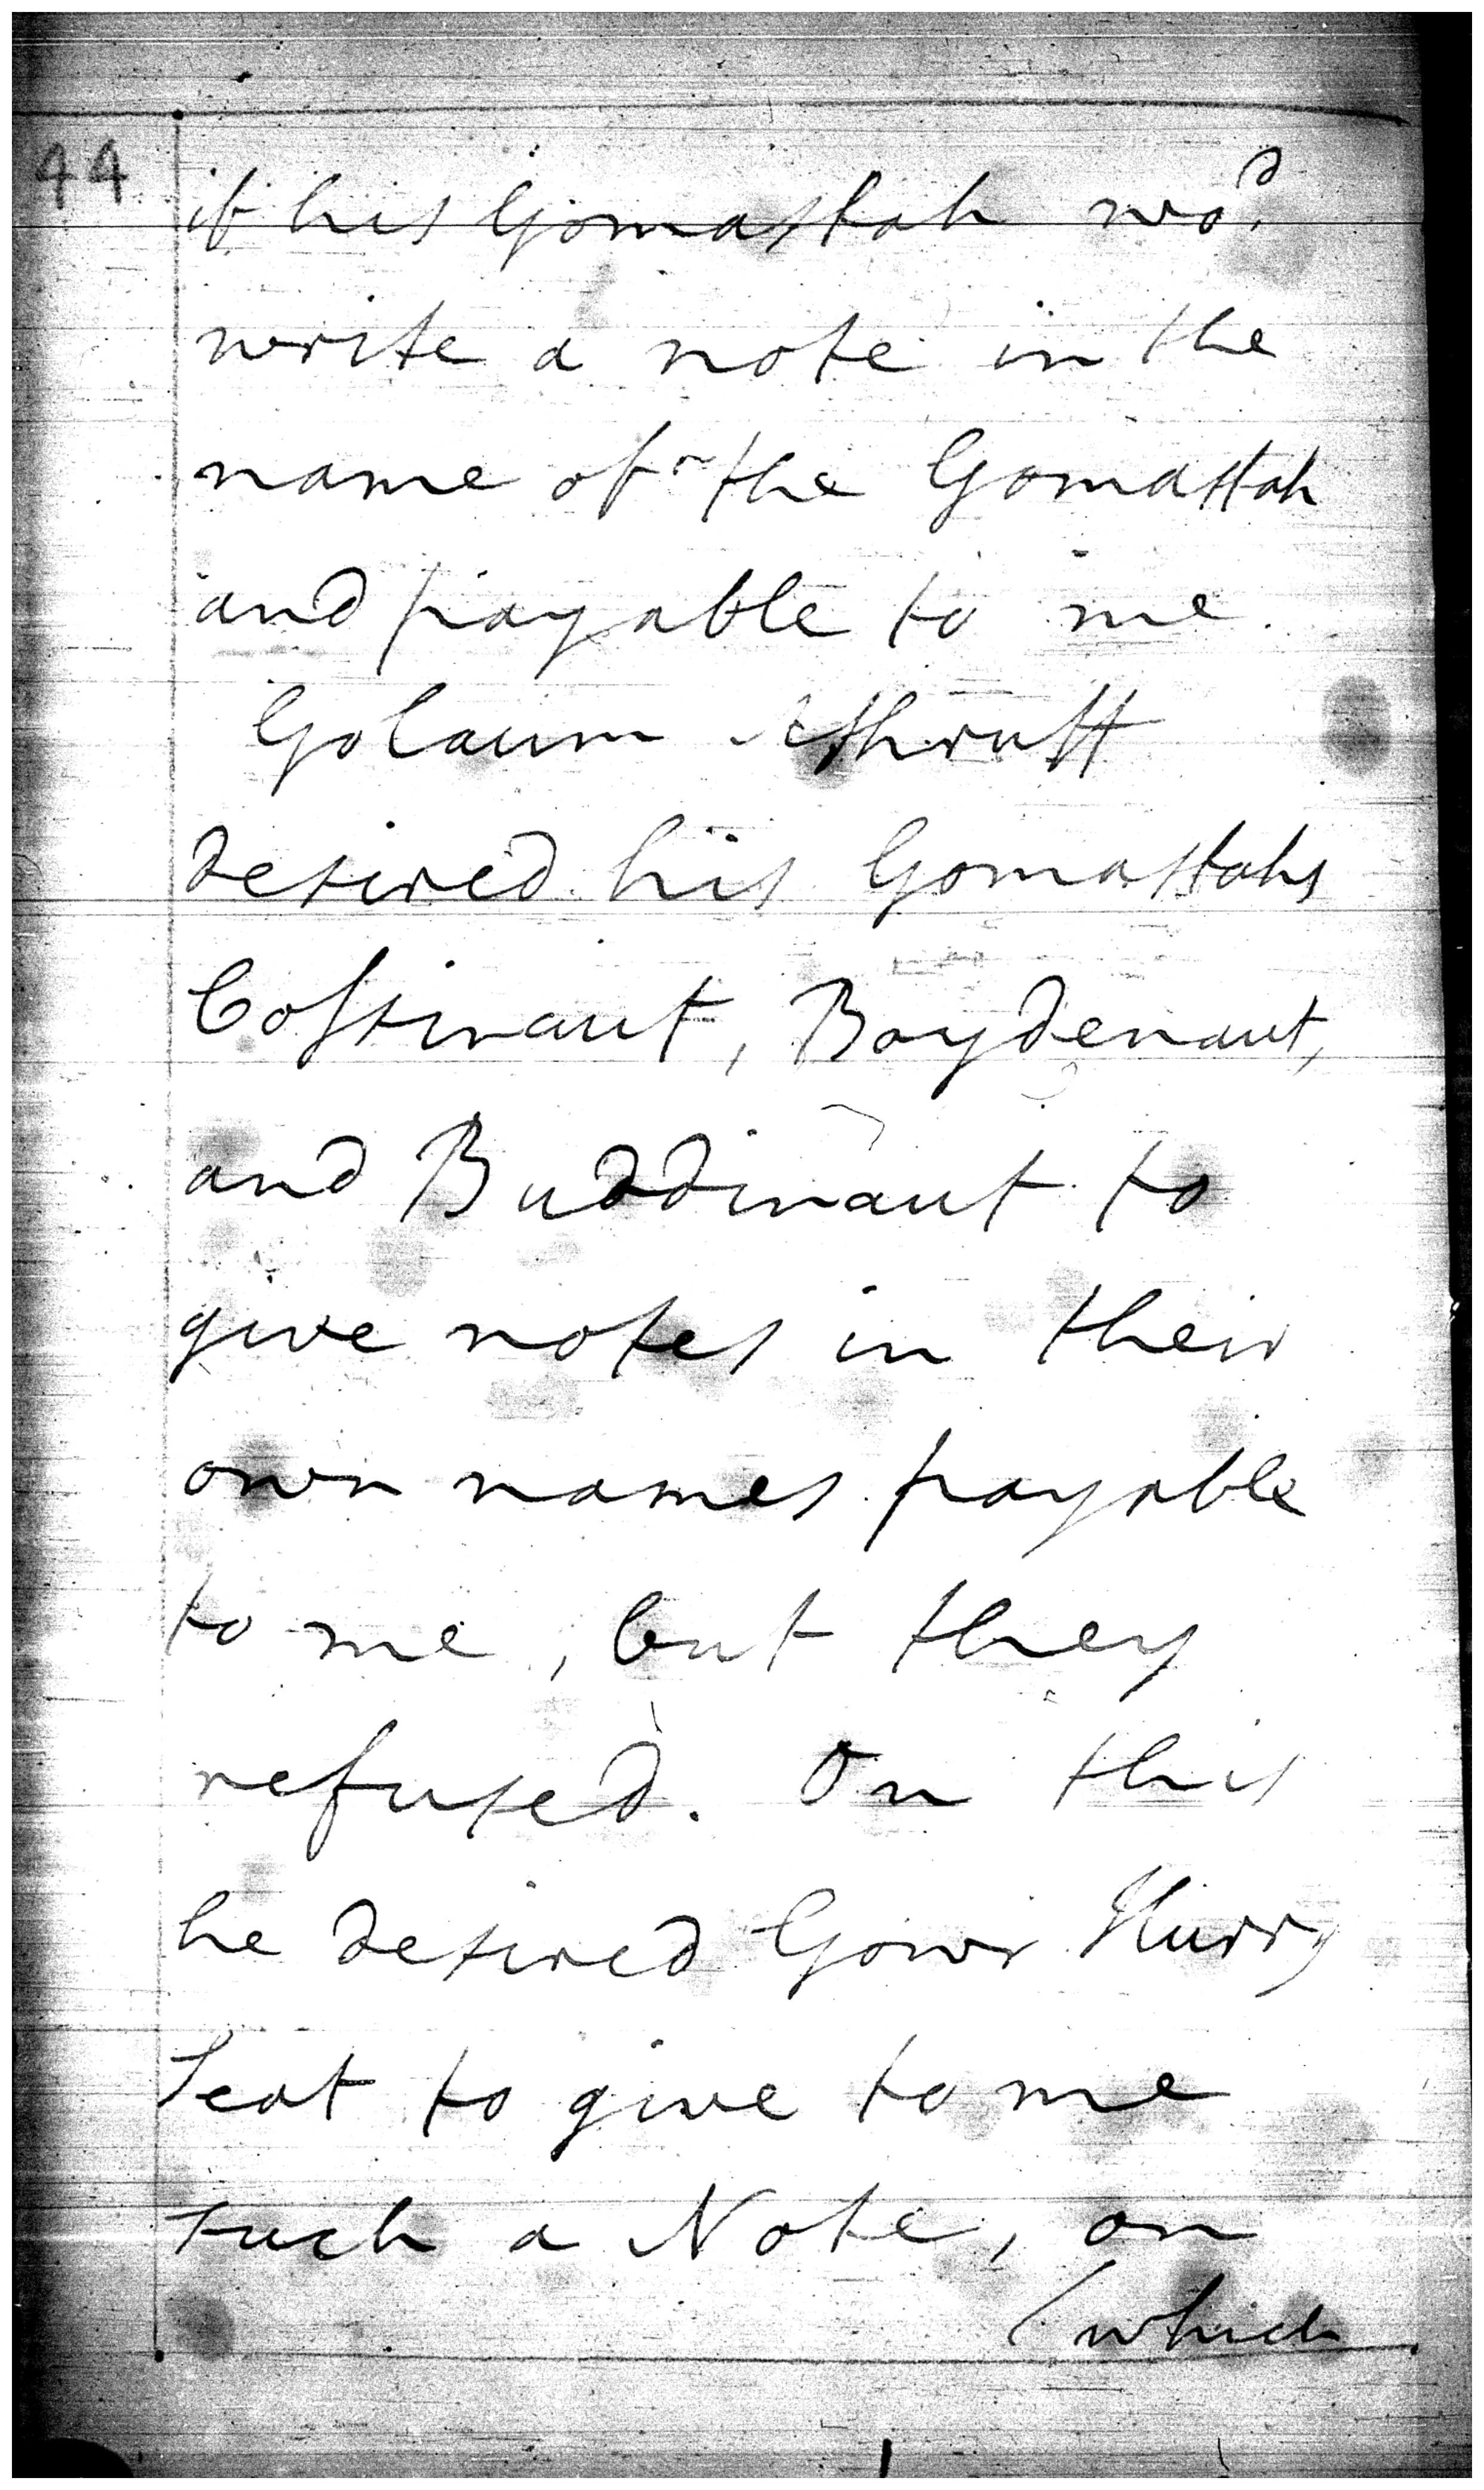 44
if his Gomastah wo.d
write a note in the
name of the Gomastah
and payable to me.
Golaum Ashruff
desired his Gomastahs
Cossinaut, Boydenaut,
and Buddinaut to
give notes in their
own names payable
to me, but they
refused. On this
he desired Gowr Hurry
Seat to give to me
such a Note, on
(which